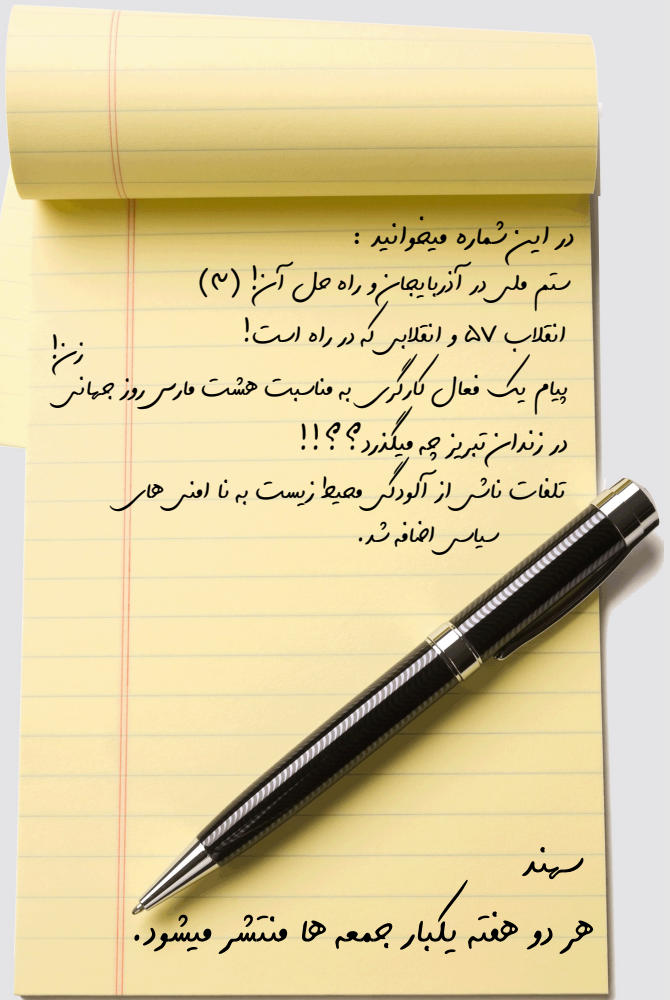 در این شماره میخوانید :
ستم ملی در آذربایجان و راه حل آن! (۳)
انقلاب ۵۷ و انقلابی که در راه است!
پیام یک فعال کارگری به مناسبت هشت مارس روز جهانی زن!
در زندان تبریز چه میگذرد؟؟!!
تلفات ناشی از آلودگی محیط زیست به نا امنی های
سیاسی اضافه شد.
سهند
هر دو هفته یکبار جمعه ها منتشر میشود.